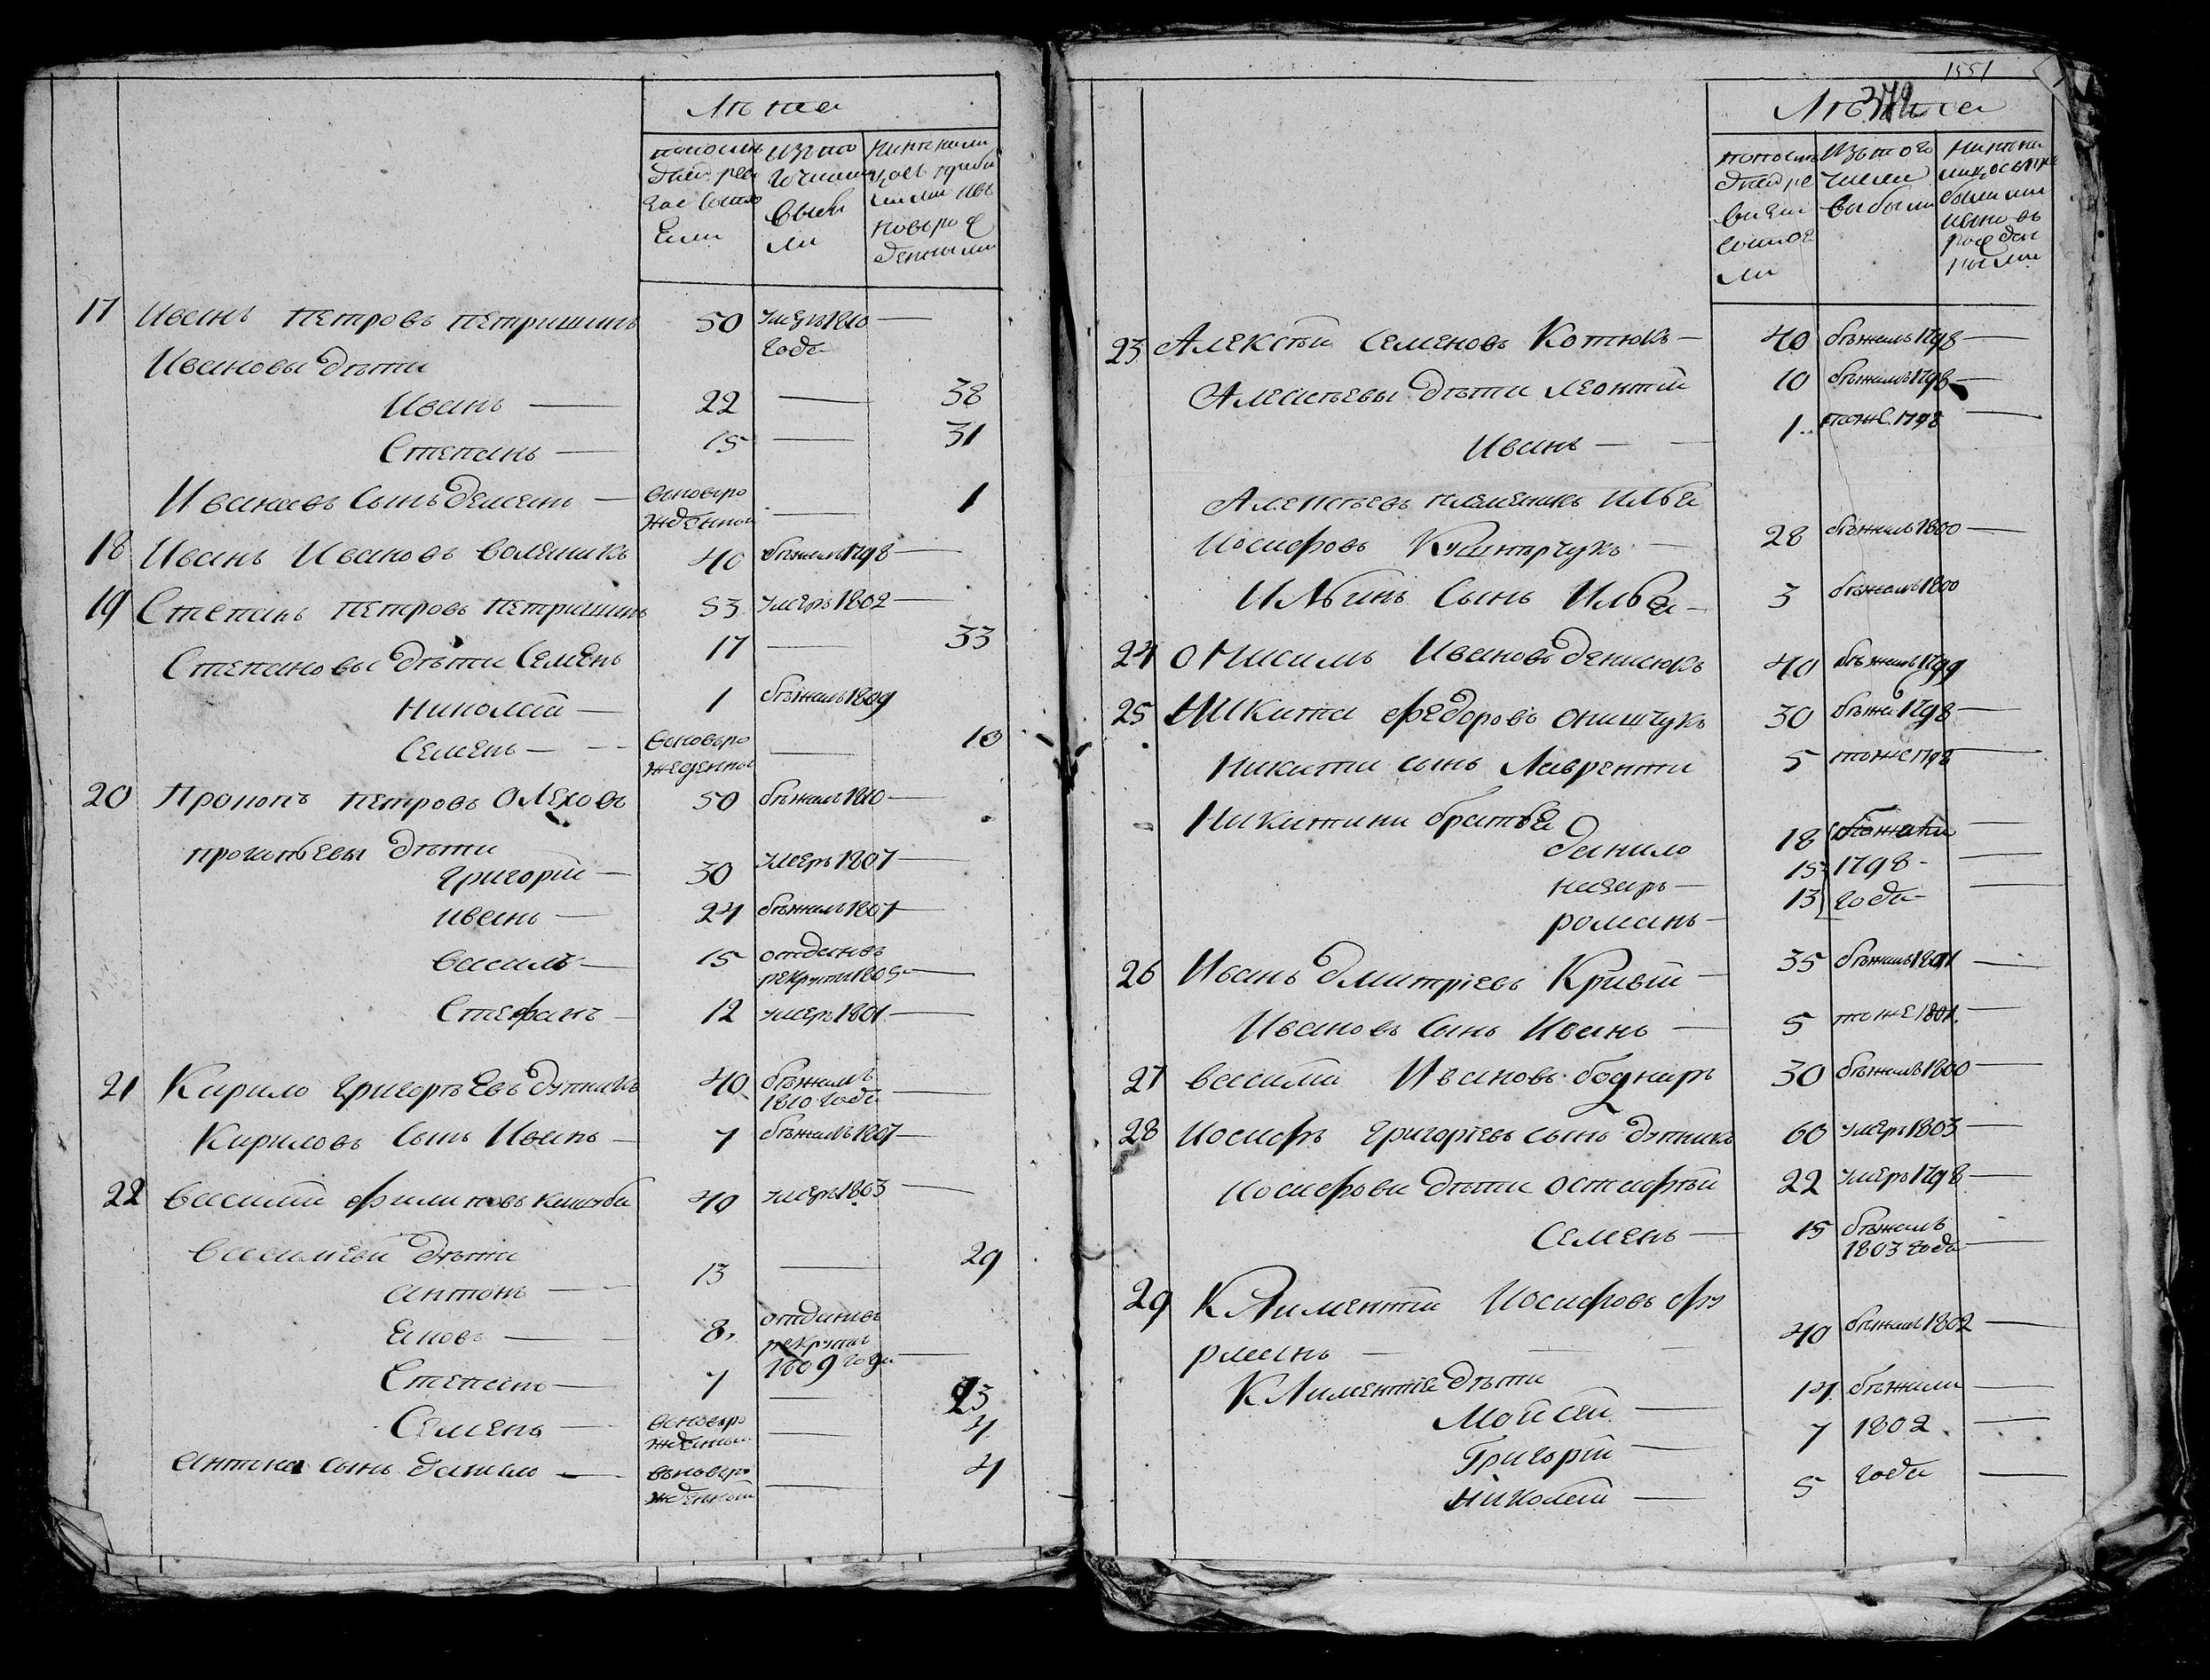 Лѣта
попослѣ дней ревизіе состояли
изъ того числа выбыли
ныне налицо съ прибылыми и новорожденными
17 Иванъ Петровъ Петришинъ 50 умеръ 1810 года —
Ивановы дѣти
Иванъ — 22 — 38
Степанъ — 15 — 31
Ивановъ сынъ Демянъ — вновьрожденной — 1
18 Иванъ Ивановъ Воляникъ 40 бѣжалъ 1798 —
19 Степанъ Петровъ Петришинъ 53 умеръ 1802 —
Степановы дѣти Семенъ 17 — 33
Николай — 1 бѣжалъ 1809
Семенъ — вновьрожденны — 10
20 Прокопъ Петровъ Олеховъ 50 бѣжалъ 1810 —
Прокопьевы дѣти
Григорій — 30 умеръ 1807 —
Иванъ — 24 бѣжалъ 1807 —
Василь — 15 отданъ въ рекруты 1805 —
Стефанъ — 12 умеръ 1801 —
21 Кирило Григорьевъ Дупникъ 40 бѣжалъ 1810 года —
Кириловъ сынъ Иванъ — 7 бѣжалъ 1807 —
22 Василій Филиповъ 40 умеръ 1803 —
Василiеви дѣти
Антонъ — 13 — 29
Яковъ — 8 отданъ въ рекруты 1809 года —
Степанъ — 7 — 23
Семенъ — вновьрожденный — 4
Антона сынъ Данило — вновьрожденный — 4
1551
372
Лѣта
попослѣдней ревизіи состояли
изъ того числа выбыли
ныне налицо съ прибылыми и новорожденными
23 Алексѣй Семеновъ Котюкъ — 40 бѣжалъ 1798 —
Алексѣевы дѣти Леонтій 10 бѣжалъ 1798 —
Иванъ — — 1 тоже 1798 —
Алексѣевъ племяникъ Илья
Иосифовъ Кушнарчукъ — 28 бѣжалъ 1800 —
Ильинъ сынъ Илья — 3 бѣжалъ 1800
24 Онисимъ Ивановъ Денисюкъ 40 бѣжалъ 1799
25 Никита Федоровъ Онишчукъ 30 бѣжа 1798 —
Никити сынъ Лаврентій 5 тоже 1798
Никитини братья
Данило 18 бѣжали —
Назаръ — 15 1798 — —
Романъ — 13 года —
26 Иванъ Дмитріевъ Кривій — 35 бѣжалъ 1801 —
Ивановъ сынъ Иванъ — 5 тоже 1801. —
27 Василій Ивановъ Боднаръ 30 бѣжалъ 1800 —
28 Иосифъ Григорiевъ сынъ Дупникъ 60 умеръ 1803 —
Иосифови дѣти Остафѣй 22 умеръ 1798 —
Семенъ — 15 бѣжалъ 1803 года —
29 Климентій Иосифовъ Фу
рманъ — — — 40 бѣжалъ 1802 —
Климентiя дѣти
Мойсей — 14 бѣжали —
Григорій — 7 1802 —
Николай — 5 года —